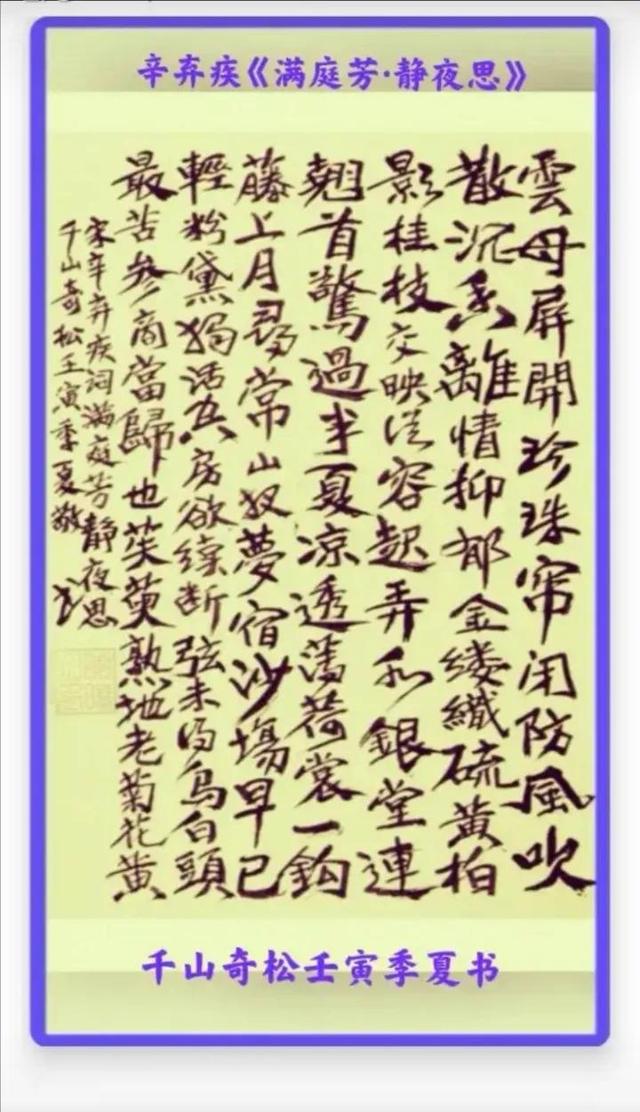 辛弃疾《满庭芳·静夜思》
雲母屏開珍珠帘闭防風吹
散沉香離情抑郁金缕織硫黄柏
影桂枝交映從容起弄水銀堂連
翘首驚過半夏凉透薄荷裳一鈎
藤上月尋常山夜夢宿沙場早已
輕粉黛獨活空房欲续断弦未得烏白頭
最苦參商當歸也茱萸熟地老菊花黄
宋辛弃疾词满庭芳静夜思
千山奇松壬寅季夏敬书
千山奇松壬寅季夏书